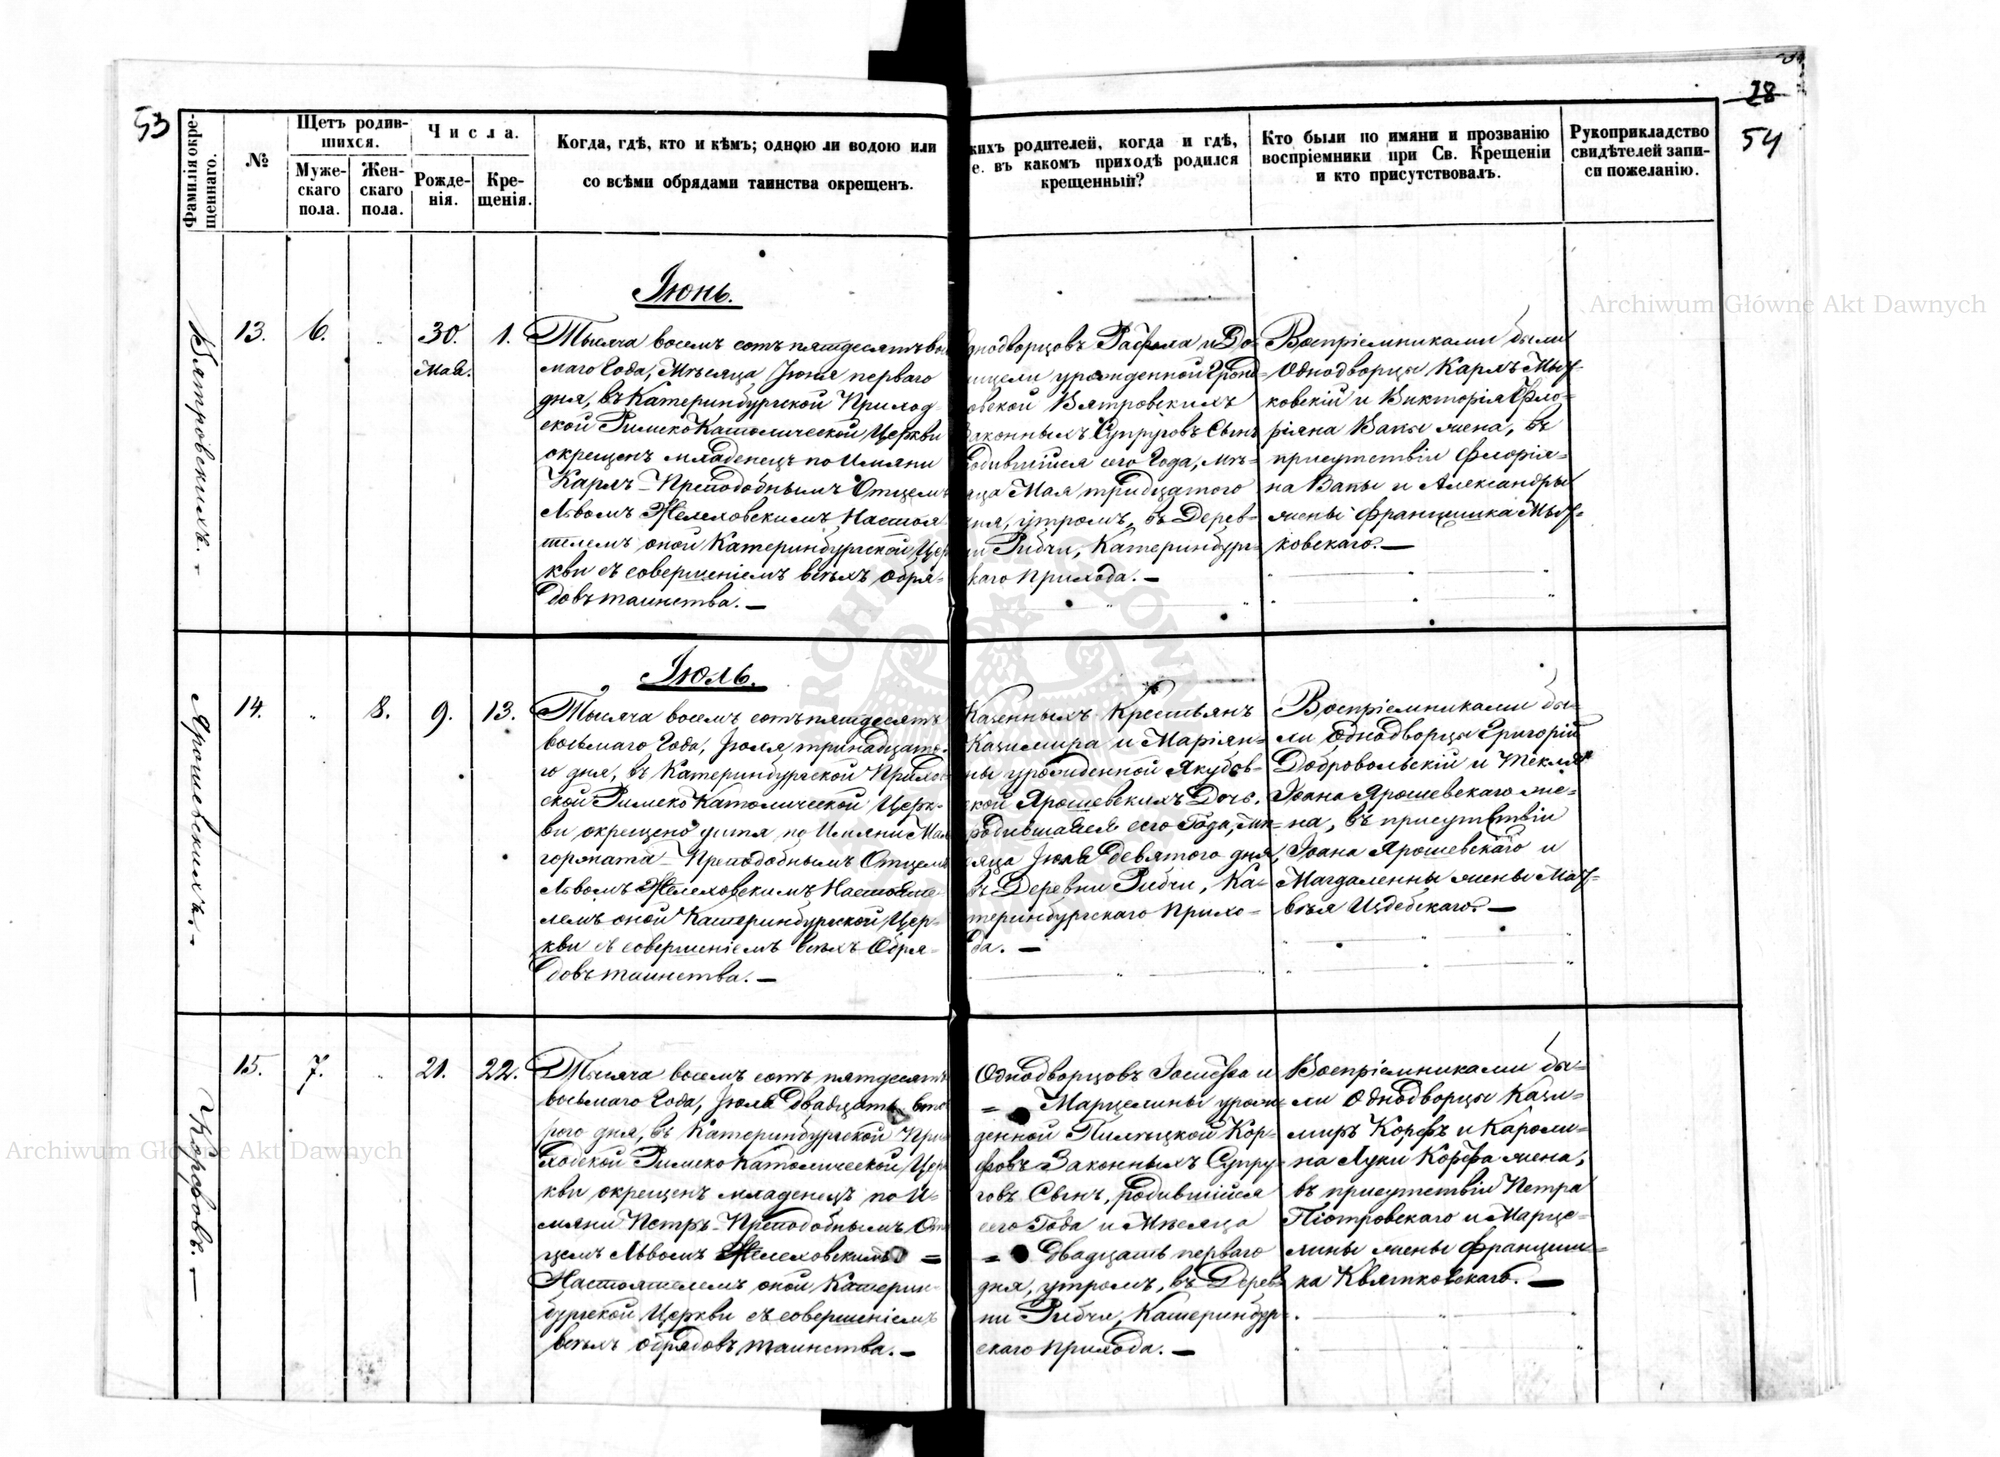 53
28
54
Фамилія окре-
щеннаго.
№
Щетъ родив-
шихся.
Муже-
скаго
пола.
Жен-
скаго
пола.
Числа.
Рожде-
нія.
Кре-
щенія.
Когда, гдѣ, кто и кѣмъ; одною ли водою или
со всѣми обрядами таинства окрещенъ.
кихъ родителей, когда и гдѣ,
е. въ какомъ приходѣ родился
крещенный?
Кто были по имяни и прозванію
воспріемники при Св. Крещеніи
и кто присутствовалъ.
Рукоприкладство
свидѣтелей запи-
си пожеланію.
Вятровскихъ.
13.
6.
30.
Мая.
1.
Іюнь.
Тысяча восемъ сотъ пятдесятъ вос
маго Года, Мѣсяца Іюня перваго
дня, въ Катеринбургской Приход
ской Римско Католической Церкви
окрещенъ младенецъ по Имяни
Карлъ - Преподобнымъ Отцемъ
Львомъ Желеховскимъ Настоя
телемъ оной Катеринбургской Цер
кви съ совершеніемъ всѣхъ обря-
довъ таинства. —
днодворцовъ Рафала и До-
ицели урожденной Гроно-
овской Вятровскихъ
Законныхъ Супруговъ Сынъ
родившійся сего Года, мѣ-
яца Мая тридцатого
дня, утромъ, въ Дерев-
ни Рибчи, Катеринбург-
каго прихода. —
Воспріемниками были
Однодворцы Карлъ
ковскій и Викторія Фло-
ріяна Вапы жена, въ
присутствіи Флорія-
на Вапы и Александры
жены Францишка
ковскаго. —
Ярошевскихъ.
14.
8.
9.
13.
Іюль.
Тысяча восемъ сотъ пятдесятъ
восьмаго Года, Іюля тринадцато-
го дня, въ Катеринбургской Прихо
ской Римско Католической Церк-
ви окрещено дитя по Имяни Мал
горжата - Преподобнымъ Отцемъ
Львомъ Желеховскимъ Настояте-
лемъ оной Катеринбургской Цер-
кви съ совершеніемъ всѣхъ Обря-
довъ таинства. —
Казенныхъ Крестьянъ
Казимира и Маріян-
ны урожденной Якубов-
ской Ярошевскихъ Дочь,
родившаяся сего Года, мѣ-
сяца Іюля девятого дня,
въ Деревни Рибчи, Ка-
теринбургскаго Прихо-
да. —
Воспріемниками бы-
ли Однодворцы Григорій
Добровольскій и Текля
Іоана Ярошевскаго же-
на, въ присутствіи
Іоана Ярошевскаго и
Магдалены жены Мат-
вѣя Издебскаго. —
Корфовъ.
15.
7.
21.
22.
Тысяча восемъ сотъ пятдесятъ
восьмаго Года, Іюля двадцать вто
рого дня, въ Катеринбургской При
ходской Римско Католической Цер
кви окрещенъ младенецъ по И-
мяни Петръ - Преподобнымъ От
цемъ Львомъ Желеховскимъ =
Настоятелемъ оной Катерин-
бургской Церкви съ совершеніемъ
всѣхъ обрядовъ таинства. —
Однодворцовъ Іосифа и
= Марцелины урож
денной Пилецкой Кор-
фовъ Законныхъ Супру-
говъ Сынъ, родившійся
сего Года и Мѣсяца
= двадцать перваго
дня, утромъ, въ Дерев-
ни Рибчи, Катеринбург-
скаго прихода. —
Воспріемниками бы-
ли Однодворцы Кази-
миръ Корфъ и Кароли-
на Луки Корфа жена,
въ присутствіи Петра
Піотровскаго и Марце-
лины жены Францыш-
ка Квятковскаго. —
Archiwum Główne Akt Dawnych
Archiwum Główne Akt Dawnych